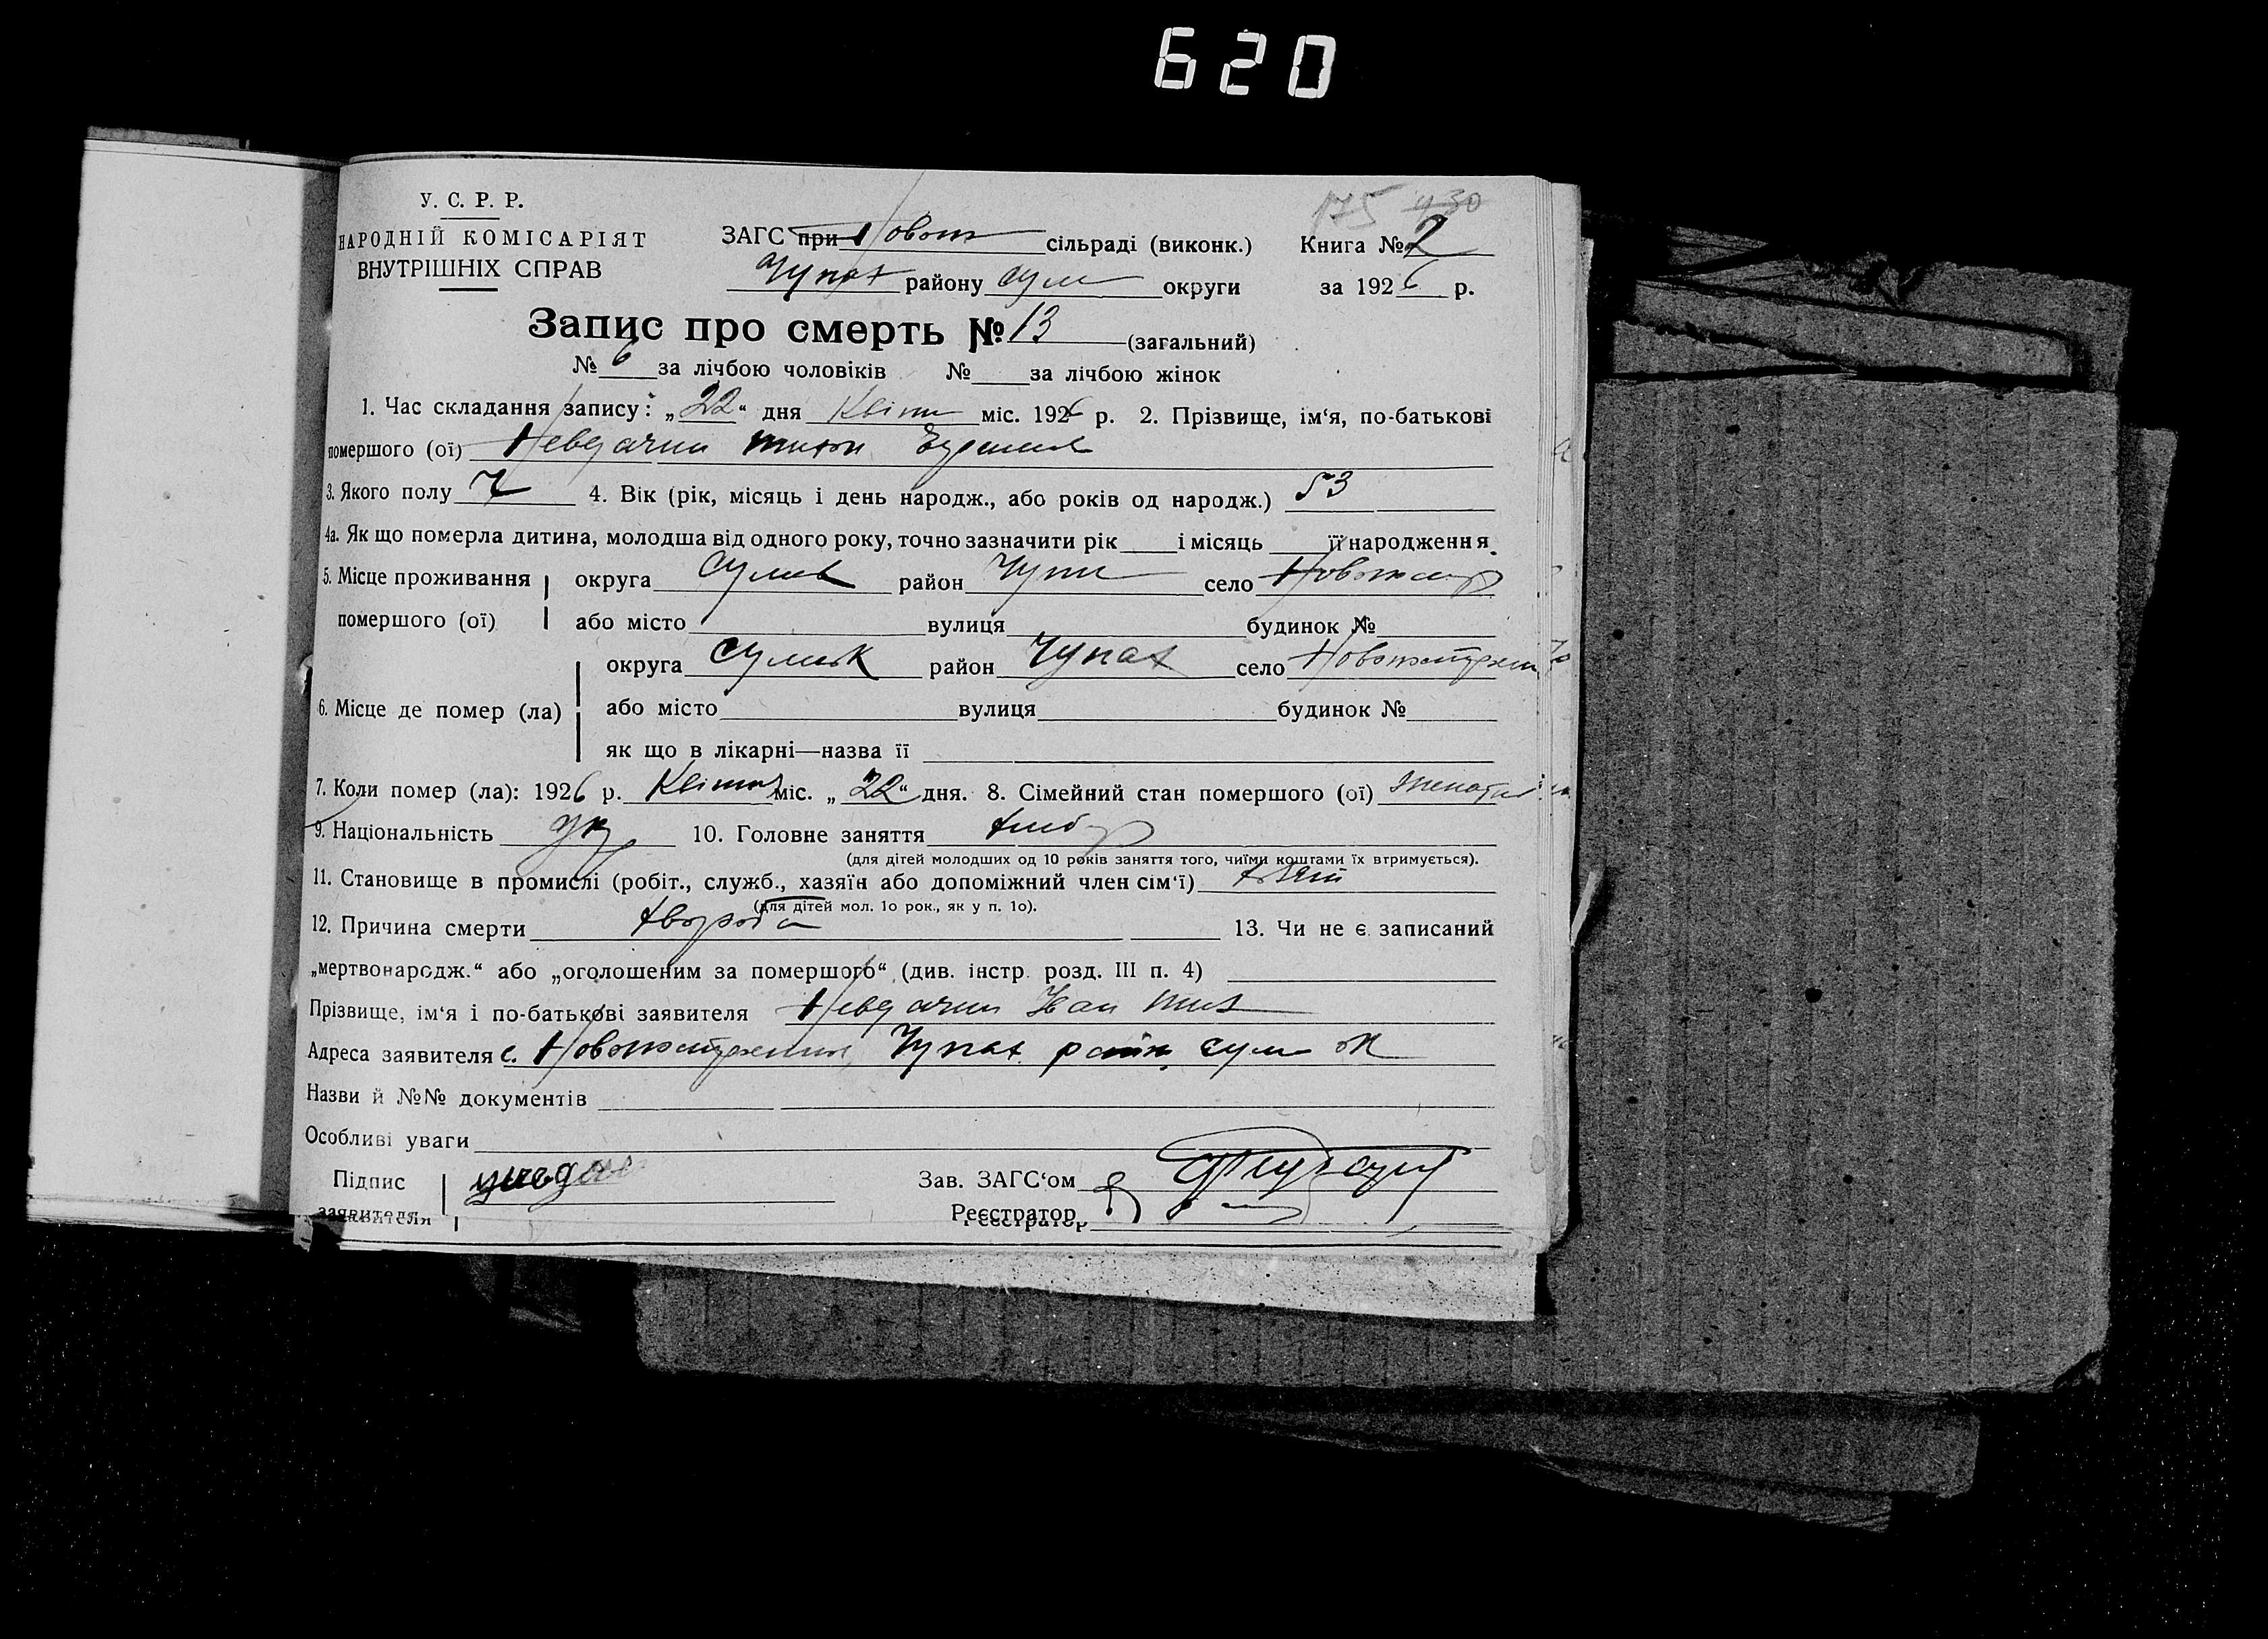 620
175 430
У. С. Р. Р.
НАРОДНІЙ КОМІСАРІЯТ
ВНУТРІШНІХ СПРАВ
ЗАГС при Новот сільраді (виконк.) Книга № 2
Чупах району Сум округи за 1926 р.
Запис про смерть № 13 (загальний)
№ 6 за лічбою чоловіків № за лічбою жінок
1. Час складання запису: „22“ дня Квітн міс. 1926 р. 2. Прізвище, ім‘я, по-батькові
помершого (ої)
3. Якого полу Ч 4. Вік (рік, місяць і день народж., або років од народж.) 53
4а. Як що померла дитина, молодша від одного року, точно зазначити рік і місяць її народження.
5. Місце проживання округа район село
помершого (ої) або місто вулиця будинок №
округа Сумськ район Чупах село
6. Місце де помер (ла) або місто вулиця будинок №
як що в лікарні—назва її
7. Коли помер (ла): 1926 р. Квітня міс. „22“ дня. 8. Сімейний стан помершого (ої)
9. Національність Ук 10. Головне заняття хліб
(для дітей молодших од 10 років заняття того, чиїми коштами їх втримується).
11. Становище в промислі (робіт., служб., хазяїн або допоміжний член сім‘ї)
(для дітей мол. 10 рок., як у п. 10).
12. Причина смерти хвороба 13. Чи не є записаний
„мертвонародж.“ або „оголошеним за помершого“ (див. інстр. розд. III п. 4)
Прізвище, ім‘я і по-батькові заявителя Іван
Адреса заявителя с. Чупах район Сум ок
Назви й №№ документів
Особливі уваги
Підпис Зав. ЗАГС‘ом
заявителя Реєстратор